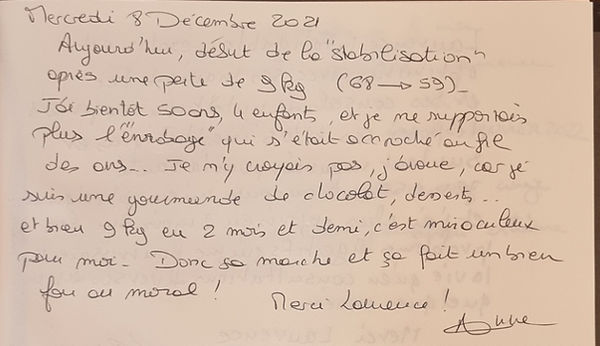 Mercredi 8 Décembre 2021
Aujourd'hui, début de la "stabilisation"
après une perte de 9 kg (68 → 59)_
J'ai bientôt 50 ans, 4 enfants, et je me supportais
plus l'"enrobage" qui s'était accroché au fil
des ans... Je n'y croyais pas, j'avoue, car je
suis une gourmande de chocolat, desserts...
et bien 9 kg en 2 mois et demi, c'est miraculeux
pour moi_ Donc ça marche et ça fait un bien
fou au moral !
Merci Laurence !
Anne